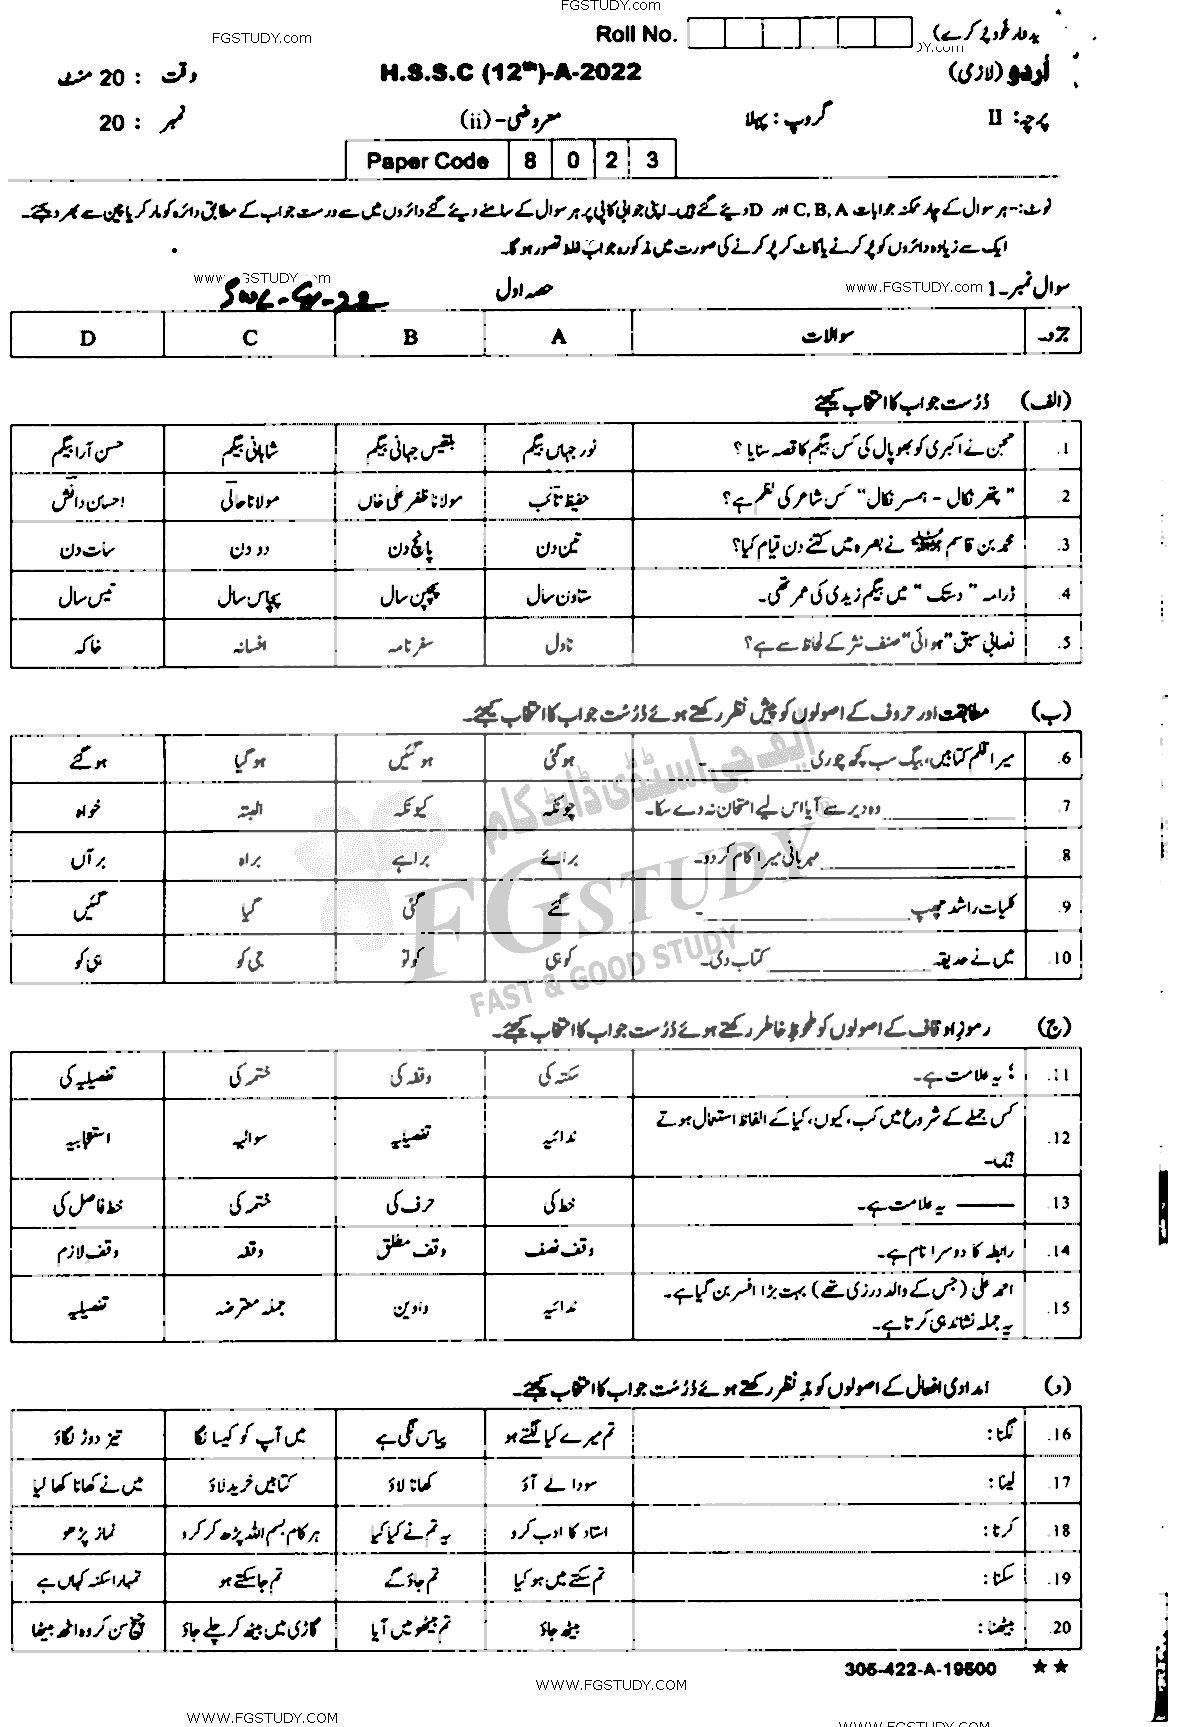 FGSTUDY.com
FGSTUDY.com
Roll No.
وقت : 20 منٹ
H.S.S.C (12th)-A-2022
اُردو (لازمی)
نمبر : 20
معروضی-(ii)
گروپ: پہلا
پرچہ: II
Paper Code 8 0 2 3
نوٹ:- ہر سوال کے چار ممکنہ جوابات C, B, A اور D دیئے گئے ہیں۔ اپنی جوابی کاپی پر ہر سوال کے سامنے دیئے گئے دائروں میں سے درست جواب کے مطابق دائرہ کو مارکر یا پین سے بھر دیجئے۔
ایک سے زیادہ دائروں کو پُر کرنے یا کاٹ کر پُر کرنے کی صورت میں مذکورہ جواب غلط تصور ہو گا۔
سوال نمبر-1 www.FGSTUDY.com حصہ اول
جزو سوالات A B C D
(الف) دُرست جواب کا انتخاب کیجئے
1. مجن نے اکبری کو بھوپال کی کس بیگم کا قصہ سنایا ؟ نور جہاں بیگم بلقیس جہانی بیگم شاہانی بیگم حسن آرا بیگم
2. "پتھر نکال - ہمسر نکال" کس شاعر کی نظم ہے؟ حفیظ تائب مولانا ظفر علی خاں مولانا حالی احسان دانش
3. محمد بن قاسم نے بصرہ میں کتنے دن قیام کیا؟ تین دن پانچ دن دو دن سات دن
4. ڈرامہ "دستک" میں بیگم زیدی کی عمر تھی۔ ستاون سال پچپن سال پچاس سال تیس سال
5. نصابی سبق "ہوائی" صنف نثر کے لحاظ سے ہے؟ ناول سفر نامہ افسانہ خاکہ
(ب) مطابقت اور حروف کے اصولوں کو پیش نظر رکھتے ہوئے دُرست جواب کا انتخاب کیجئے۔
6. میرا قلم کتابیں، بیگ سب کچھ چوری ________۔ ہو گئی ہو گئیں ہو گیا ہو گئے
7. ________ وہ دیر سے آیا اس لیے امتحان نہ دے سکا۔ چونکہ کیونکہ البتہ خواہ
8 ________ مہربانی میرا کام کر دو۔ برائے براہے براہ بر آں
9. کلیات راشد چھپ ________۔ گئے گئی گیا گئیں
10. میں نے حدیقہ ________ کتاب دی۔ کو ہی کو تو جی کو ہی کو
(ج) رموز اوقاف کے اصولوں کو ملحوظ خاطر رکھتے ہوئے دُرست جواب کا انتخاب کیجئے۔
11. ؛ یہ علامت ہے۔ سکتہ کی وقفہ کی ختمہ کی تفصیلیہ کی
12. کس جملے کے شروع میں کب، کیوں، کیا کے الفاظ استعمال ہوتے ہیں۔ ندائیہ تفصیلیہ سوالیہ استعجابیہ
13. ——— یہ علامت ہے۔ خط کی حرف کی ختمہ کی خط فاصل کی
14. رابطہ کا دوسرا نام ہے۔ وقف نصف وقف مطلق وقفہ وقف لازم
15. احمد علی (جس کے والد درزی تھے) بہت بڑا افسر بن گیا ہے۔ یہ جملہ نشاندہی کرتا ہے۔ ندائیہ واوین جملہ معترضہ تفصیلیہ
(د) امدادی افعال کے اصولوں کو مدِ نظر رکھتے ہوئے دُرست جواب کا انتخاب کیجئے۔
16. لگنا: تم میرے کیا لگتے ہو پیاس لگی ہے میں آپ کو کیسا لگا تیز دوڑ لگاؤ
17. لینا: سودا لے آؤ کھانا لاؤ کتابیں خرید لاؤ میں نے کھانا کھا لیا
18. کرنا: استاد کا ادب کرو یہ تم نے کیا کیا ہر کام بسم اللہ پڑھ کر کرو نماز پڑھو
19. سکنا: تم سکتے میں ہو کیا تم جاؤ گے تم جا سکتے ہو تمہارا سکنہ کہاں ہے
20. بیٹھنا: بیٹھ جاؤ تم بیٹھو میں آیا گاڑی میں بیٹھ کر چلے جاؤ چیخ سن کر وہ اٹھ بیٹھا
ایف جی اسٹڈی ڈاٹ کام
FGSTUDY
FAST & GOOD STUDY
305-422-A-19500 ★★
WWW.FGSTUDY.COM
WWW.FGSTUDY.COM